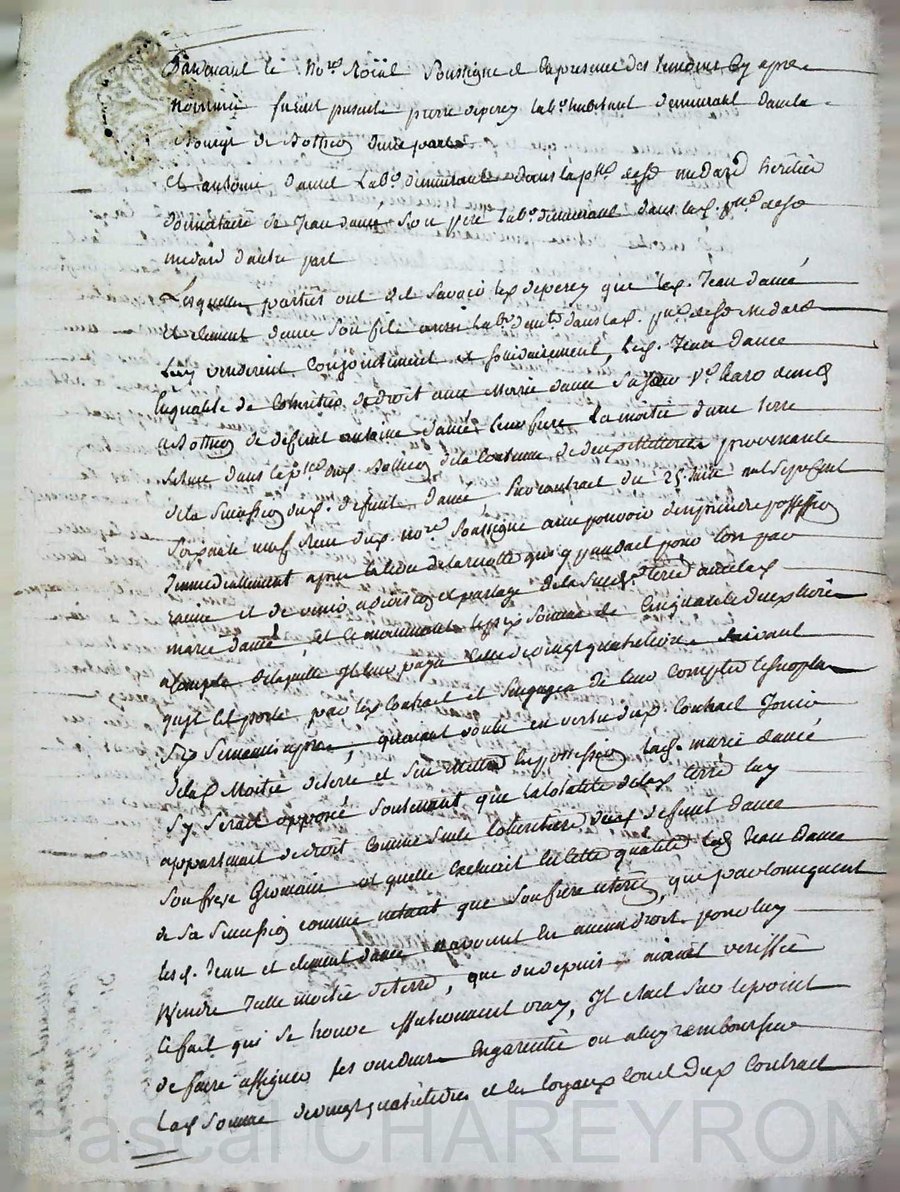 Pardevant le no.re Roïal Soussigné et En presence des temoins Cy apres
nommés furent presents pierre deperey lab.r habitant demeurant dans la
d'une part
Et antoine damé Lab.r demeurant dans la p.sse de S.t medard heritier
donnataire de Jean damé Son pere lab.r demeurant dans lad. p.sse de S.t
medard d'autre part
Lesquelles parties ont dit Savoir led. deperey que led. Jean damé
Et clement damé Son fils aussi lab.r dem.ts dans lad. p.sse de S.t medard
Luy vendirent Conjointement et Solidairement, led. Jean damé
En qualité de Coheritier de droit avec Marie damé Sa Sœur v.e
de deffunt antoine damé leur frere La moitié d'une terre
Située dans la p.sse provenante
de la Succession dud. deffunt damé Par contract du 25 Juin mil Sept Cent
Soixante neuf Receu dud. no.re Soussigné avec pouvoir d'en prendre possession
immediatement apres la levée de la recolte qui y pendait pour lors par
racine et de venir a division et partage de la Susd. terre avec lad.
marie damé, et ce moyennant la Somme de Cinquante deux livres
a Compte de laquelle Il leur paya Celle de vingt quatre livres Suivant
qu'il Est porté par led. Contract et S'engagea de leur Compter le Surplus
Six Semaines apres, qu'ayant voulu en vertu dud. Contract Jouir
de lad. Moitié de terre et S'en mettre En possession lad. marie damé
S'y Serait opposée Soutenant que la totalité de lad. terre luy
appartenait de droit Comme Seule Coheritiere dud. deffunt damé
Son frere Germain et quelle Excluait En Cette qualité led. Jean Damé
de Sa Succession comme n'etant que Son frere uterin, que par Consequent
les d. Jean et clement damé n'avoient En aucun droit pour luy
Vendre Telle moitié de terre, que du depuis aiant veriffié
Ce fait qui Se trouve effectivement vray, Il etait Sur le point
de faire assigner Ses vendeurs En garentie ou a luy rembourser
Lad. Somme de vingt quatre livres et les loyaux Cout dud. Contract
Pascal CHAREYRON